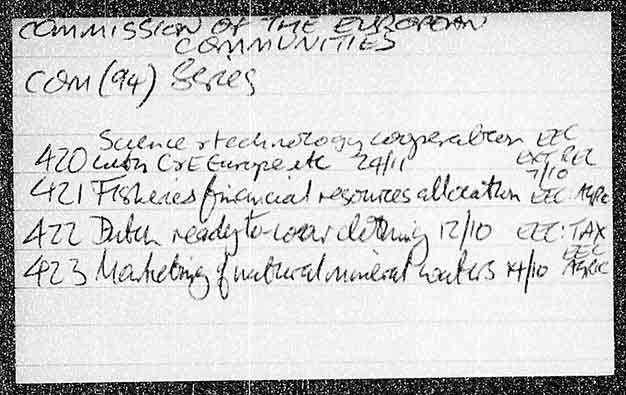 COMMISSION OF THE EUROPEAN
COMMUNITIES
COM (94) Series
Science & technology cooperation EEC
420 with C & E Europe etc 24/11 EXT REL
7/10
421 Fisheries financial resources allocation EEC: AGRIC
422 Dutch ready to wear clothing 12/10 EEC: TAX
423 Marketing of natural mineral waters 14/10 EEC
AGRIC